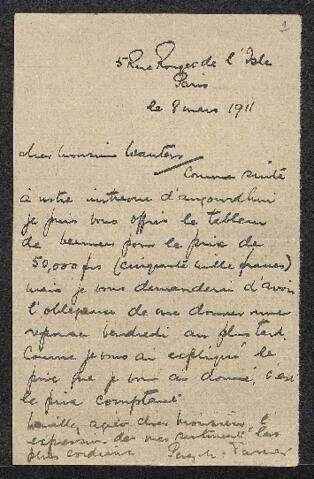 5 Rue Rouget de l'Isle
Paris
le 8 mars 1911
cher monsieur Wauters
Comme suite
à notre entrevue d'aujourd'hui
je puis vous offrir le tableau
de pour le prix de
50,000 frs (cinquante mille francs)
mais je vous demanderai d'avoir
l'obligeance de me donner une
reponse vendredi au plus tard.
Comme je vous ai expliqué le
prix que je vous ai donné, c'est
le prix comptant
Veuillez agréer cher monsieur, l'
expression de mes sentiments les
plus cordiaux